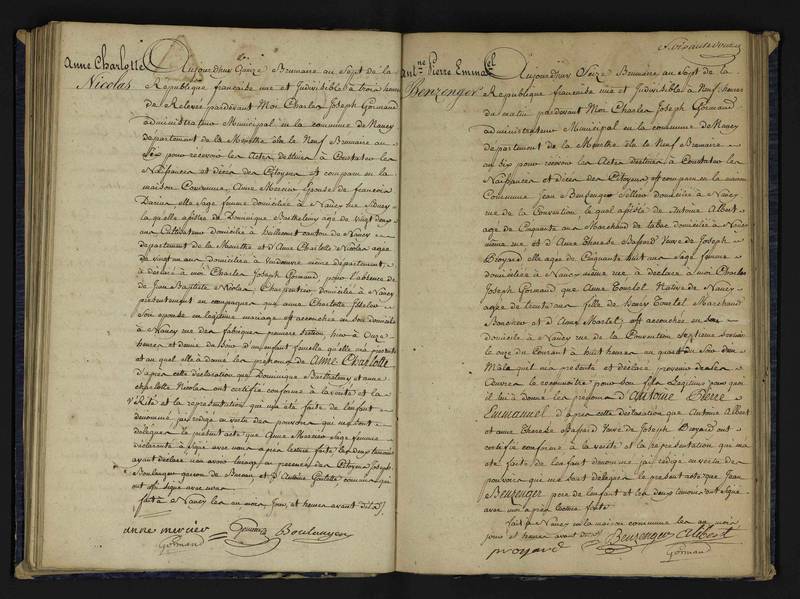 Anne Charlotte
Nicolas
Aujourdhuy Quinze Brumaire au Sept de la
République française une et Indivisible à trois heures
de Relevée pardevant Moi Charles Joseph Gormand
administrateur Municipal de la commune de Nancy
département de la Meurthe élu le Neuf Brumaire an
Six pour recevoir les Actes destinés à Constater les
Naissances et décès des Citoyens est comparu en la
maison Commune, Anne Mercier Epouse de françois
elle Sage femme domiciliée à Nancy rue
laquelle assistée de Dominique Barthelemy agé de vingt deux
ans Cultivateur domicilié à canton de Nancy
département de la Meurthe et d'Anne Charlotte Nicolas agée
de vingt un ans domiciliée à même département,
à déclaré à moi Charles Joseph Gormand, pour l'absence de
de Jean Baptiste Nicolas Charpentier domicilié à Nancy
que anne Charlotte
Son epouse en légitime mariage est accouchée en son domicile
à Nancy rue des fabriques première Section, hier à Onze
heures et demie du Soir d'un enfant femelle qu'elle m'a présenté
et au quel elle à donné les prénoms de Anne Charlotte
d'après cette déclaration que Dominique Barthelemy et anne
charlotte Nicolas ont certifié conforme à la vérité et la
Vérité et la représentation qui m'a été faite de l'enfant
dénommé, j'ai rédigé en vertu des pouvoirs qui me sont
délégués le présent acte que Anne Mercier Sage femme
déclarante à signé avec nous après lecture faite, les deux temoins
ayant déclaré en présence des Citoyens Joseph
Boulanger garçon de Bureau et d'Antoine commis qui
ont signé avec nous
fait à Nancy les an mois Jour, et heures avant dits
anne mercier Boulanger
Gormand
Soixante douze
antne Pierre Emmael
Benzenger
Aujourdhuy Seize Brumaire au Sept de la
République française une et Indivisible à Neuf heures
du matin pardevant Moi Charles Joseph Gormand
administrateur Municipal de la commune de Nancy
département de la Meurthe élu le Neuf Brumaire
an Six pour recevoir les Actes destinés à Constater les
Naissances et décès des Citoyens, est comparu en la maison
Commune Jean Benzenger Sellier domicilié à Nancy
rue de la Convention le quel assisté de Antoine Albert
agé de Cinquante ans Marchand de tabac domicilié à Nancy
même rue et d'Anne therese Veuve de Joseph
Proyard elle agée de Cinquante huit ans Sage femme
domiciliée à Nancy même rue à déclaré à moi Charles
Joseph Gormand que Anne Native de Nancy
agée de trente ans fille de Marchand
et d'Anne Martel, est accouchée en son
domicile à Nancy rue de la Convention Septième Section
le onze du Courant à huit heures un quart du Soir d'un
Mâle quel m'a présenté et déclaré
le reconnoitre pour son fils Légitime pour quoi
il lui à donné les prénoms d'Antoine Pierre
Emmanuel d'après cette déclaration que Antoine Albert
et anne therese Veuve de Joseph Proyard ont
certifié conforme à la vérité et la représentation qui m'a
été faite de l'enfant dénommé, j'ai rédigé en vertu des
pouvoirs qui me sont délégués le présent acte que Jean
Benzenger père de l'enfant et les deux temoins ont signé
avec moi après lecture faite
fait à Nancy en la maison commune les an mois
jours et heures avant dits Benzenger Albert
proyard
Gormand